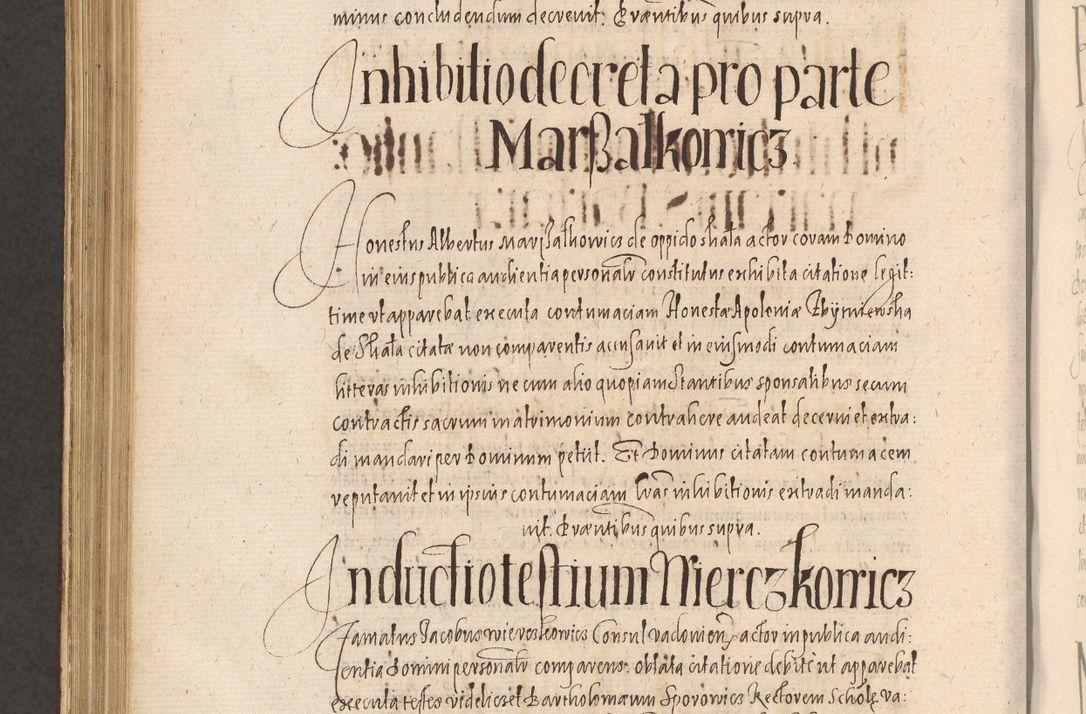 minus concludendum decrevit. Præntibus quibus supra.
Inhibitio decreta pro parte
Marßalkowicz
Honestus Albertus Marßalkowicz de oppido skała actor coram Domino
in eius publica audientia personalr constitutus exhibita citatione legit:
time ut apparebat executa contumaciam Honestæ Apoloniæ
de Skała citatæ non comparentis accusavit et in eiusmodi contumaciam
litteras inhibitionis ne cum alio quopiam stantibus sponsalibus secum
contractis sacrum matrimonium contrahere audeat decerni et extra:
di mandari per Dominum petiit. Et Dominus citatam contumacem
reputavit et in ipsius contumaciam Lras inhibitionis extradi manda:
vit. Præntibus quibus supra.
Inductio testium Wierczkowicz
Famatus Jacobus Consul vadovien actor in publica audi:
entia Domini personalr comparens oblata citatione debite ut apparebat
executa testes videliczet Bartholomæum Sporowicz Rectorem Scholę va: